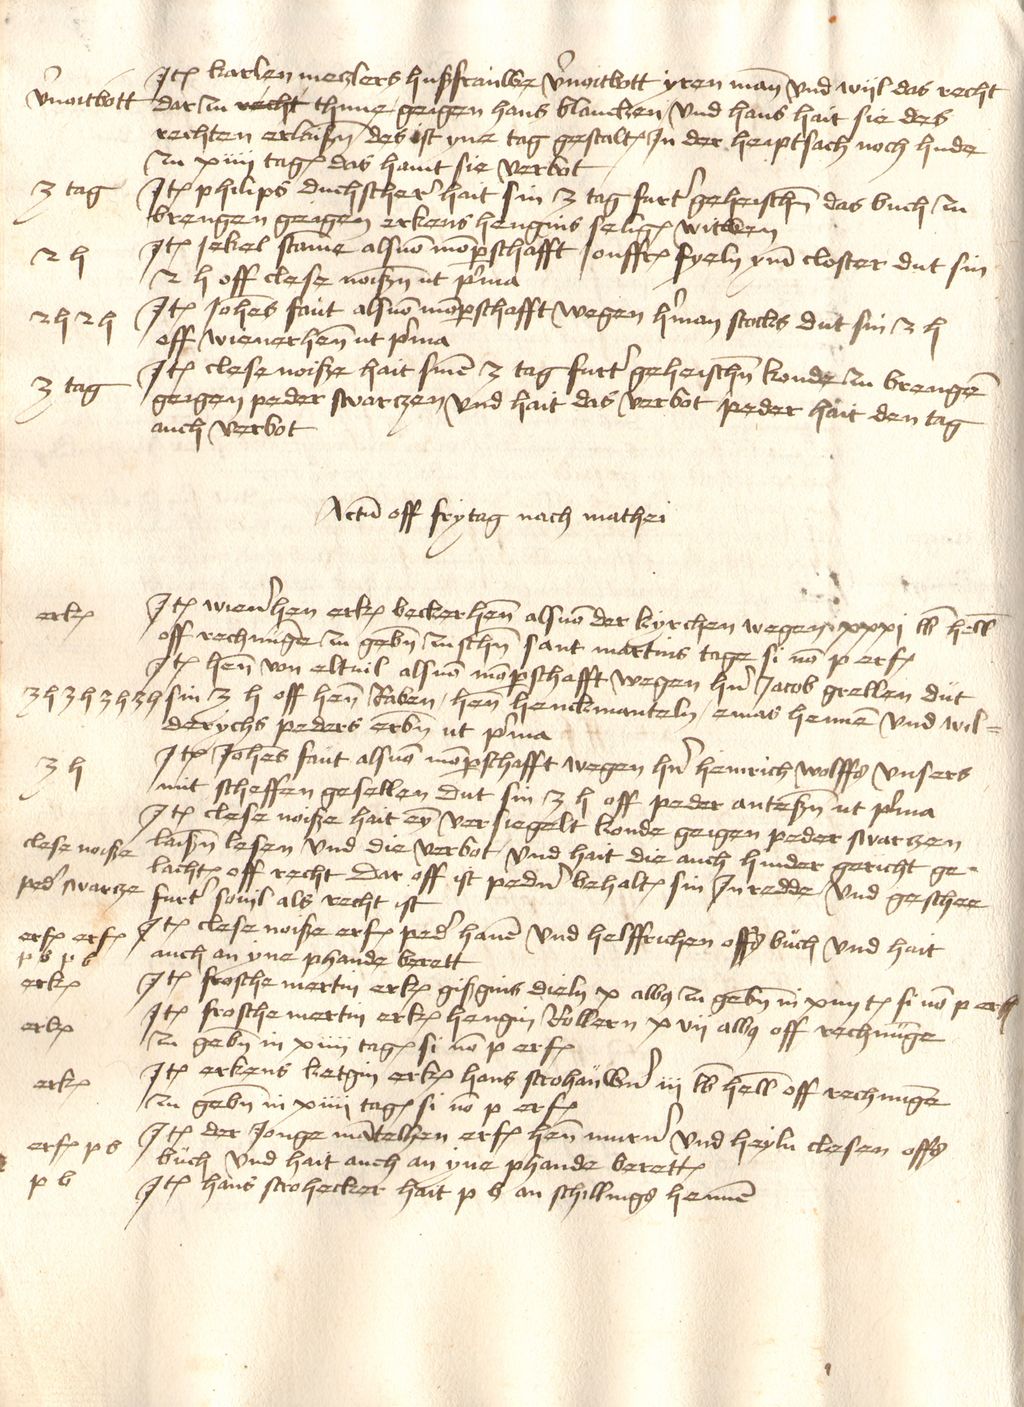 Jt(em) karlen meczlers hußfrauwe v(er)noitbott yren man vnd wijl das recht
v(er)noitbott dar zu recht thune geigen hans blanczen vnd hans hait sie des
rechten erlaiß(e)n des ist yne tag gestalt Jn der heiptsach noch hude
zu xiiii tag(en) das hant sie verbot
3 tag Jt(em) philips duchscher(er) hait sin 3 tag furt(er) geheisch(e)n das buch zu
brengen geigen erkens hengins selig(en) witwen
2 h Jt(em) Jekel stam(m)e als vo(n) mo(m)p(ar)schafft Jonffr(auwe) fyeln ym closter dut sin
2 h off clese noiß(e)n ut p(ri)ma
2 h 2 h Jt(em) Joh(ann)es faut als vo(n) mo(m)p(ar)schafft wegen h(er)man stocks dut sin 2 h
off wienerhen(ne) ut p(ri)ma
3 tag Jt(em) clese noiße hait sine(n) 3 tag furt(er) geheisch(e)n konde zu brenge(n)
geigen peder swarczen vnd hait das verbot peder hait den tag
auch verbot
Actu(m) off frytag nach mathei
erk(en) Jt(em) wien(er)hen erk(en) beckerhen(ne) als vo(n) der kyrchen wegen xxxi lb hell(er)
off rechnu(n)ge zu geb(e)n zusch(e)n sant martins tage si no(n) p erf(olgt)
Jt(em) hen(ne) von eltuil als vo(n) mo(m)p(ar)schafft wegen h(er)n Jacob grellen dut
3 h 3 h 3 h 3 h sin 3 h off hen(ne) Raben / hen(ne) henckmanteln / emas hennen vnd wil=
derichs peders erb(e)n ut p(ri)ma
3 h Jt(em) Joh(ann)es faut als vo(n) mo(m)p(ar)schafft wegen h(er)n heinrich wolffs vnsers
mit scheffen gesellen dut sin 3 h off peder anteß(e)n ut p(ri)ma
Jt(em) clese noiße hait ey(n) versiegelt konde geigen peder swarczen
clese noiße laiß(e)n lesen vnd die verbot vnd hait die auch hinder gericht ge-
ped(er) swarcze lacht off recht Dar off ist ped(er)n behalt(en) sin Jnredde vnd geschee
furt(er) souil als recht ist
erf(olgt) erf(olgt) Jt(em) clese noiße erf(olgt) ped(er) hane(n) vnd helffrichen offs buch vnd hait
p b p b auch an yne phande berett
erk(en) Jt(em) frosche mertin erk(en) gißgins dieln x alb(us) zu geb(e)n in xiiii t(agen) si no(n) p erf(olgt)
erk(en) Jt(em) frosche mertin erk(en) hengin Rollern xvii alb(us) off rechnu(n)ge
zu geb(e)n in xiiii tag(en) si no(n) p erf(olgt)
erk(en) Jt(em) erkens ketgin erk(en) hans strohauw(er)n iii lb hell(er) off rechnu(n)ge
zu geb(e)n in xiiii tag(en) si no(n) p erf(olgt)
erf(olgt) p b Jt(em) der Jonge mu(n)telhen erf(olgt) hen(ne) mur(er)n vnd heyln clesen offs
buch vnd hait auch an yne phande berett
p b Jt(em) hans strohecker hait p b an schillings henne(n)